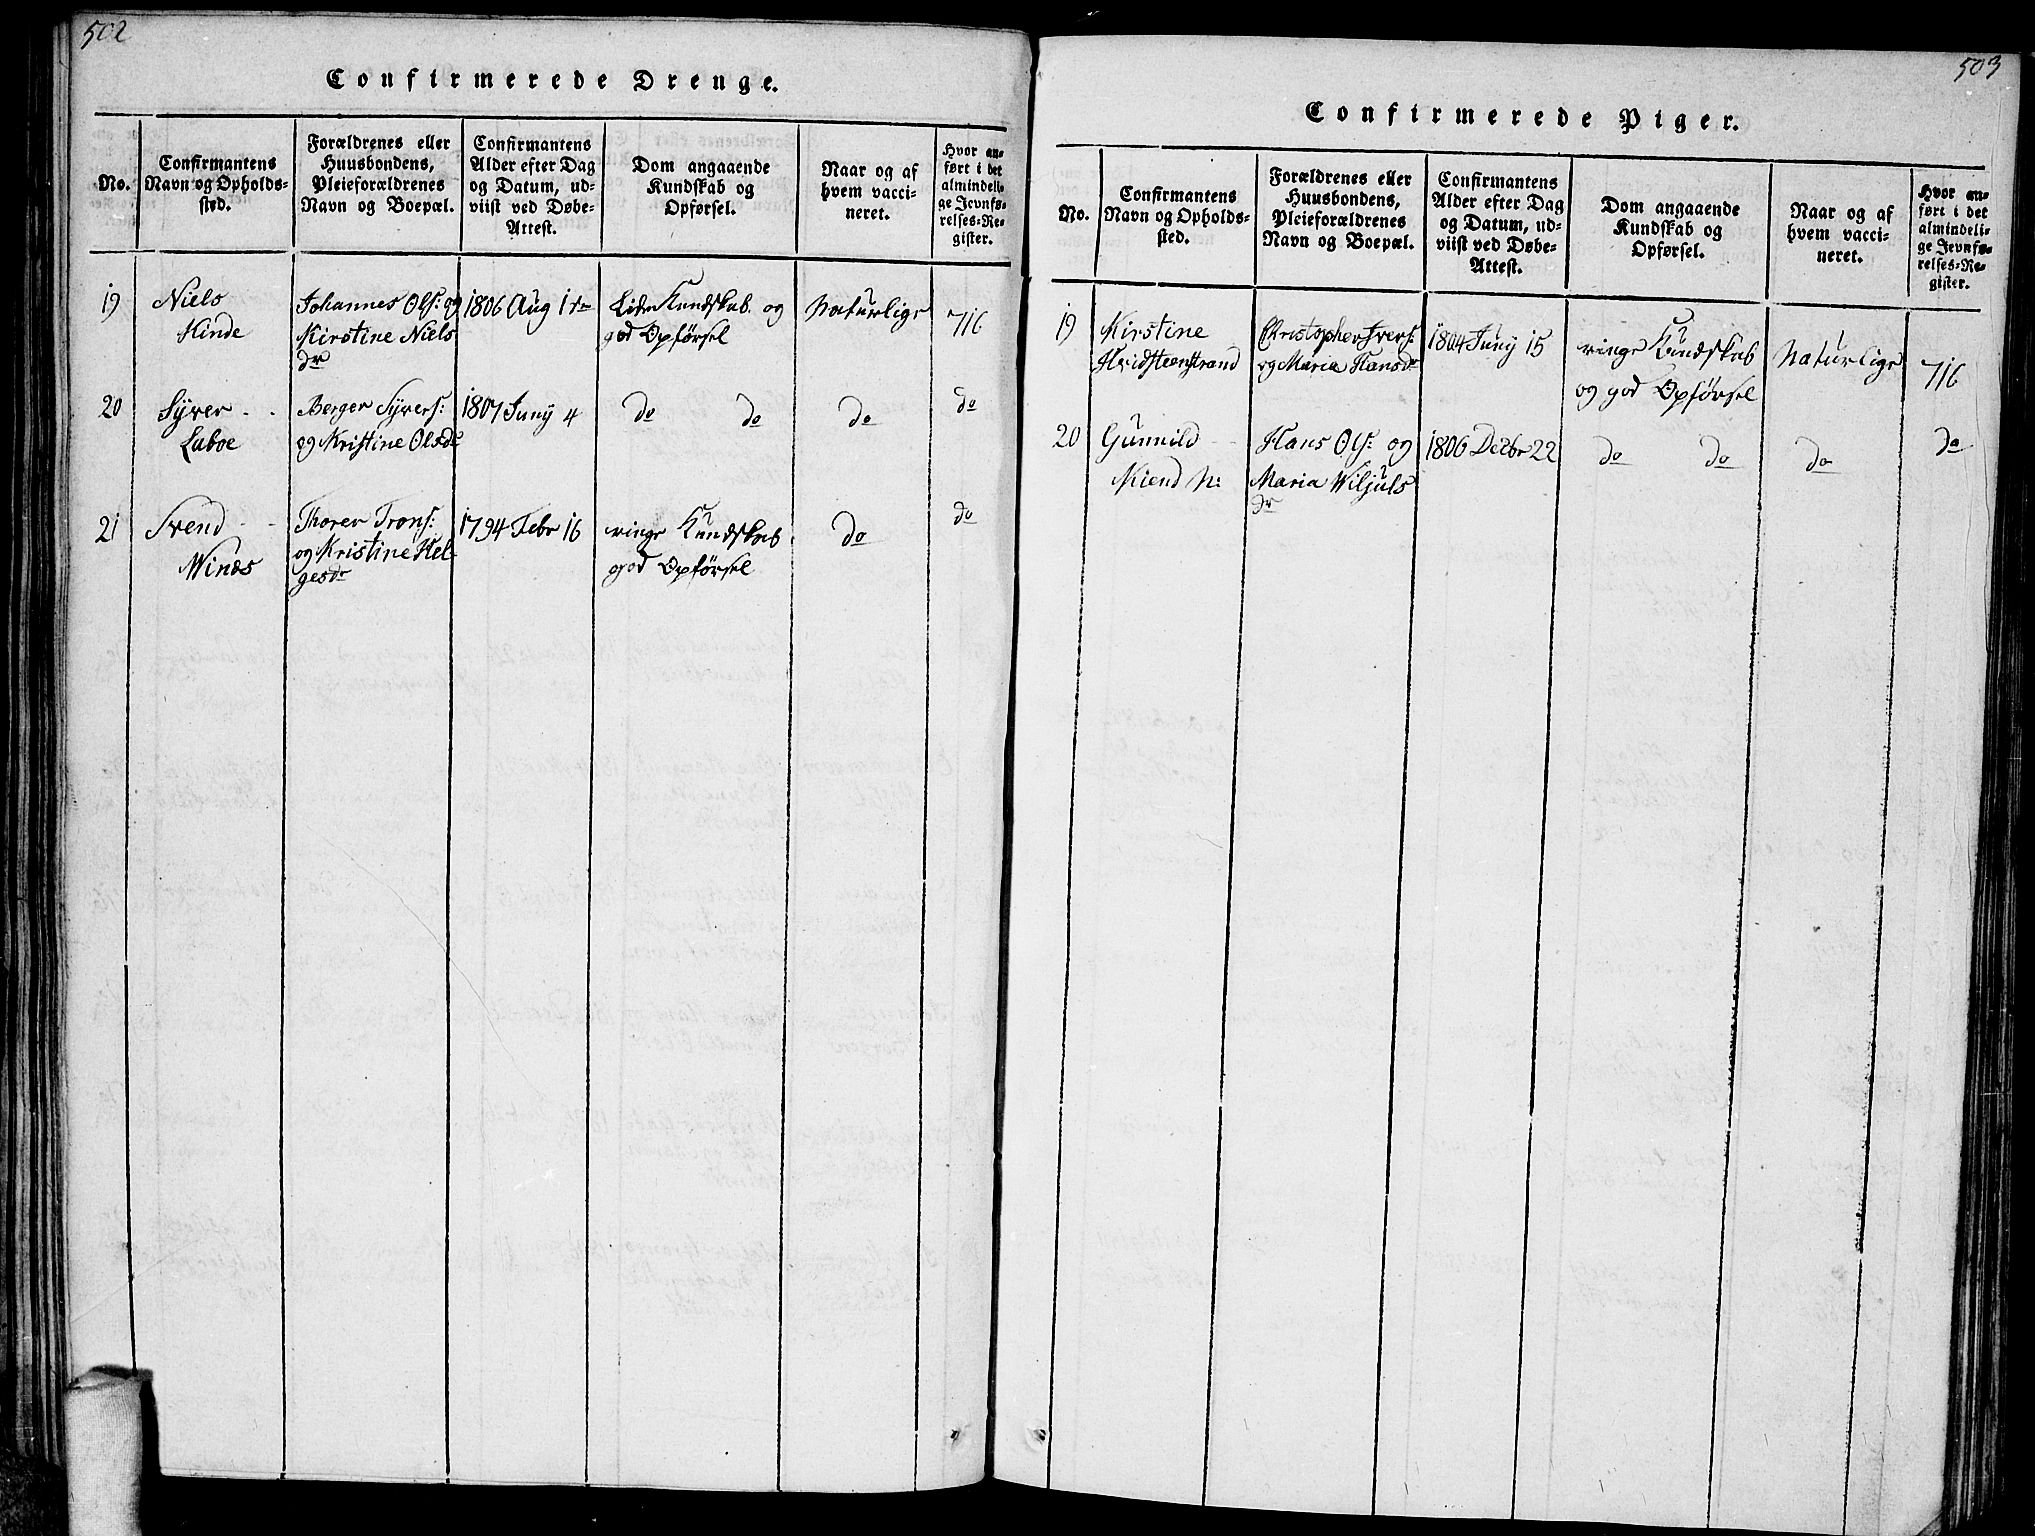 502
Confirmerede Drenge.
No.
Confirmantens
Navn og Opholds-
sted.
Forældrenes eller
Huusbondens,
Pleieforældrenes
Navn og Boepæl.
Confirmantens
Alder efter Dag
og Datum, ud-
viist ved Døbe-
Attest.
Dom angaaende
Kundskab og
Opførsel.
Naar og af
hvem vacci-
neret.
Hvor an-
ført i det
almindeli-
ge Jevnfø-
relses-Re-
gister.
19
Niels
Kinde
Johannes Ols: og
Kirstine Niels
dr
1806 Aug 1
Liden Kundskab og
god Opførsel
Naturlige
716
20
Syver
Laboe
Berger Syvers:
og Kristine Olsdr
1807 Juny 4
do do
do
do
21
Svend
Winæs
Thorer Trons:
og Kristine Hel-
gesdr
1794 Febr 16
ringe Kundskab
god Opførsel
do
do
503
Confirmerede Piger.
No.
Confirmantens
Navn og Opholds-
sted.
Forældrenes eller
Huusbondens,
Pleieforældrenes
Navn og Boepæl.
Confirmantens
Alder efter Dag
og Datum, ud-
viist ved Døbe-
Attest.
Dom angaaende
Kundskab og
Opførsel.
Naar og af
hvem vacci-
neret.
Hvor an-
ført i det
almindeli-
ge Jevnfø-
relses-Re-
gister.
19
Kirstine
Hvidsteenstrand
Christopher Ivers:
og Maria Hansdr
1804 Juny 15
ringe Kundskab
og god Opførsel
Naturlige
716
20
Gunnild
Kiend N:
Hans Ols: og
Maria Wiljuls
dr
1806 Decbr 22
do do
do
do